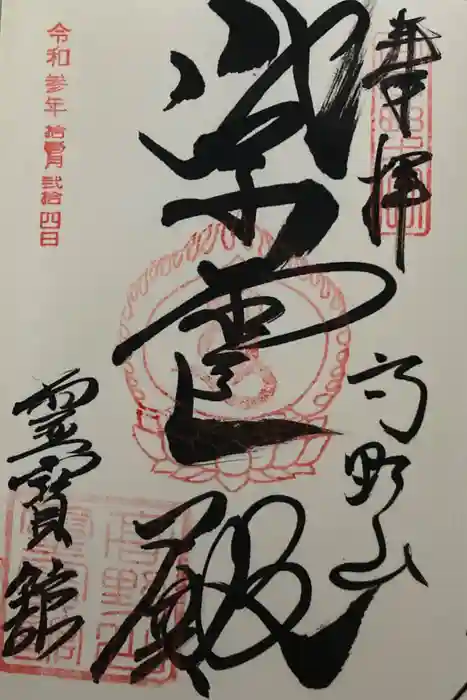 奉拝
高野山
紫雲殿
令和参年拾壹月弐拾四日
靈寶館